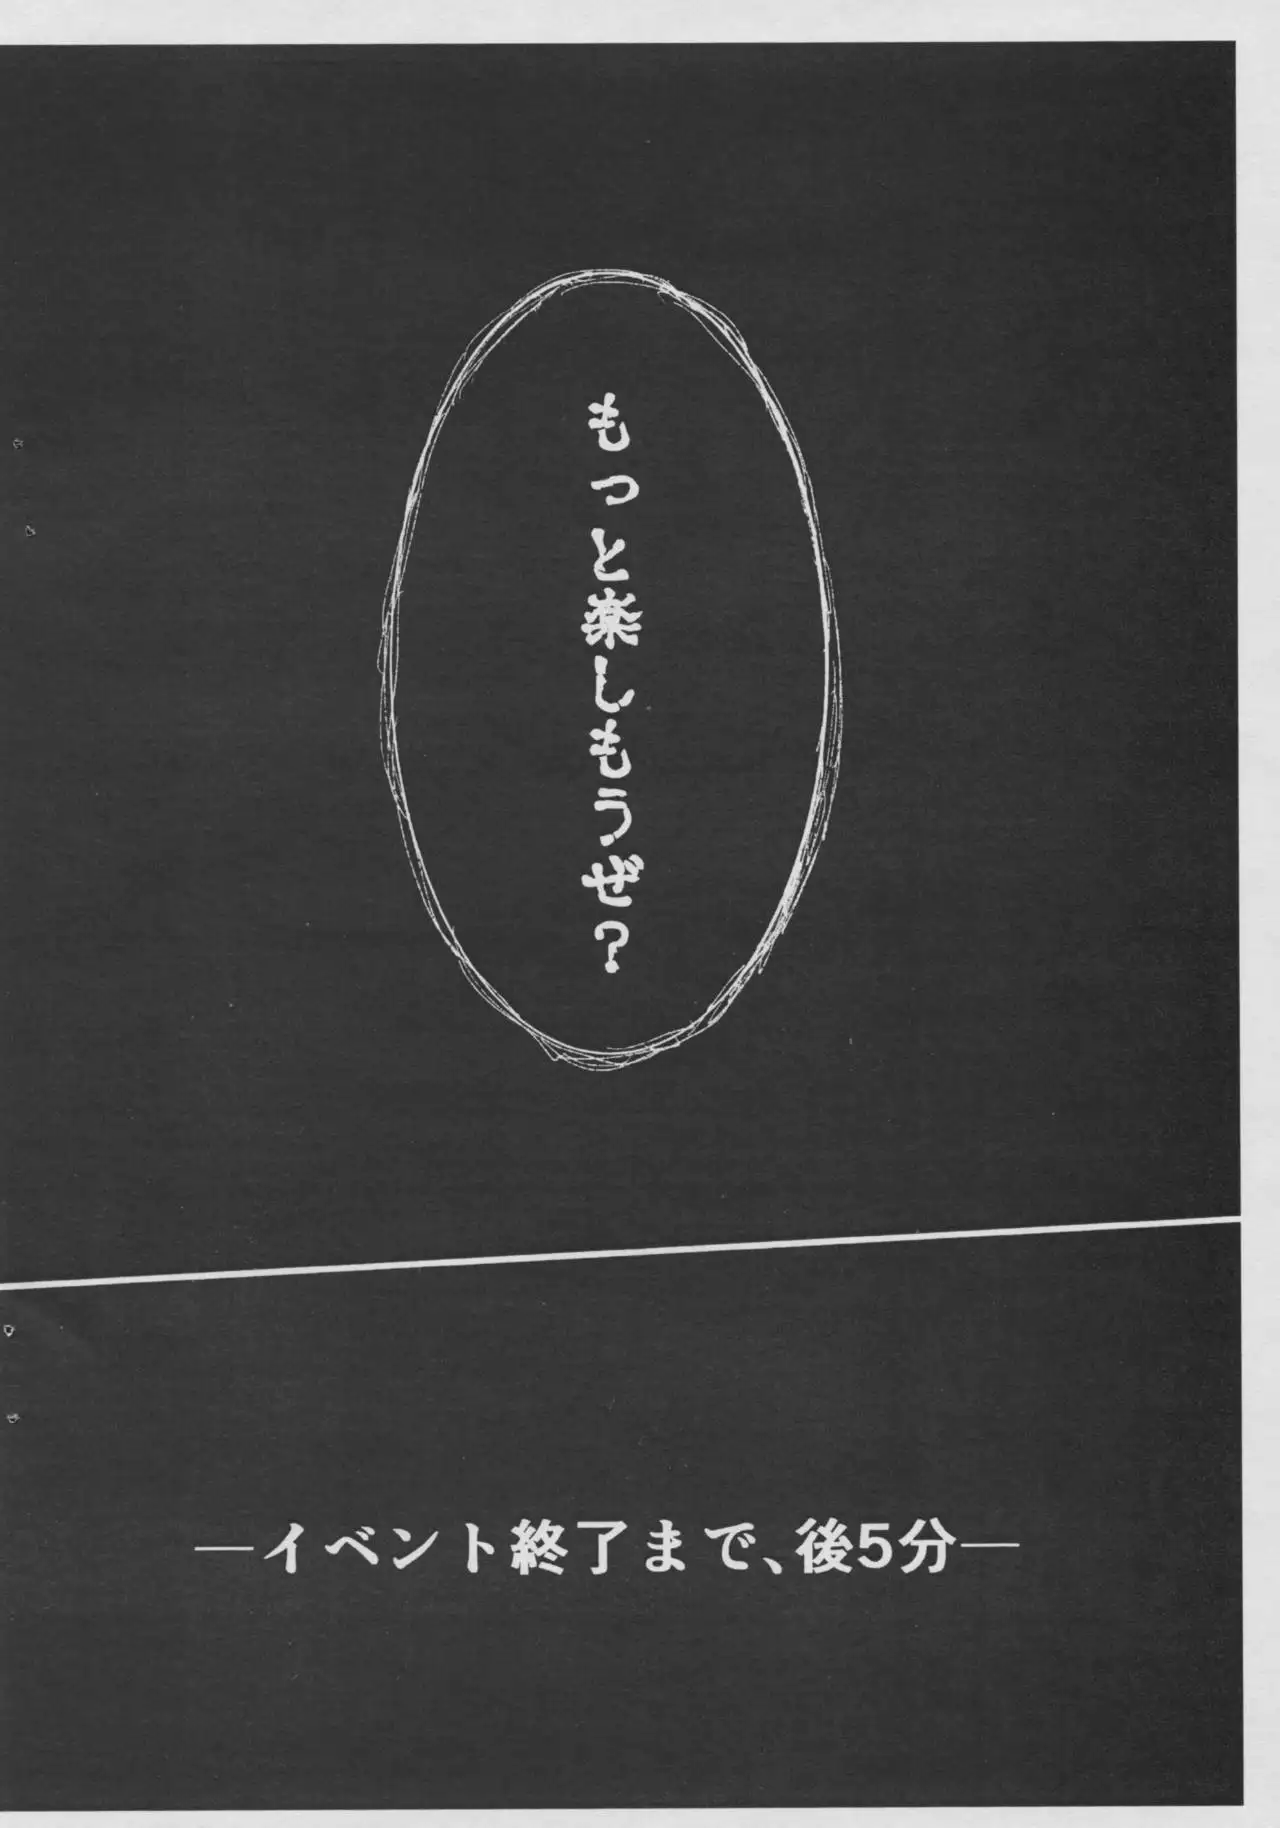 もっと楽しもうぜ?
―イベント終了まで、後5分―